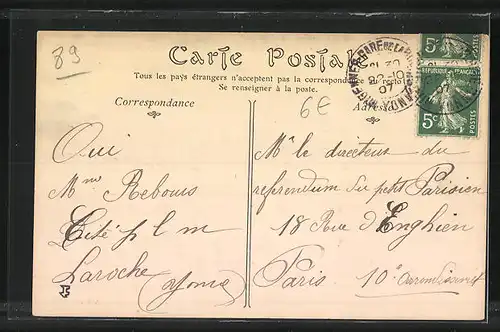 89
Carte Postale
Tous les pays étrangers n'acceptent pas la correspondance au recto
Se renseigner à la poste.
Correspondance
6€
Adresse
5c
RÉPUBLIQUE FRANÇAISE
5c
POSTES
GARE DE LAROCHE
22-10
07
Oui
Mme Rebours
Cité p l m
Laroche (Yonne)
Mr le directeur du
referendum du petit Parisien
18 Rue d'Enghien
Paris 10e arrondissement